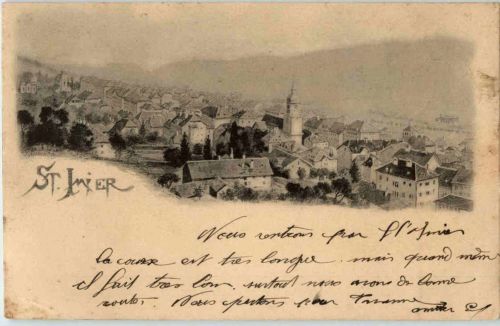 ST. IMIER
Nous rentrons par St Imier
la course est très longue. mais quand même
il fait très bon, surtout nous avons de bonne
routes. Nous partons pour Tavanne